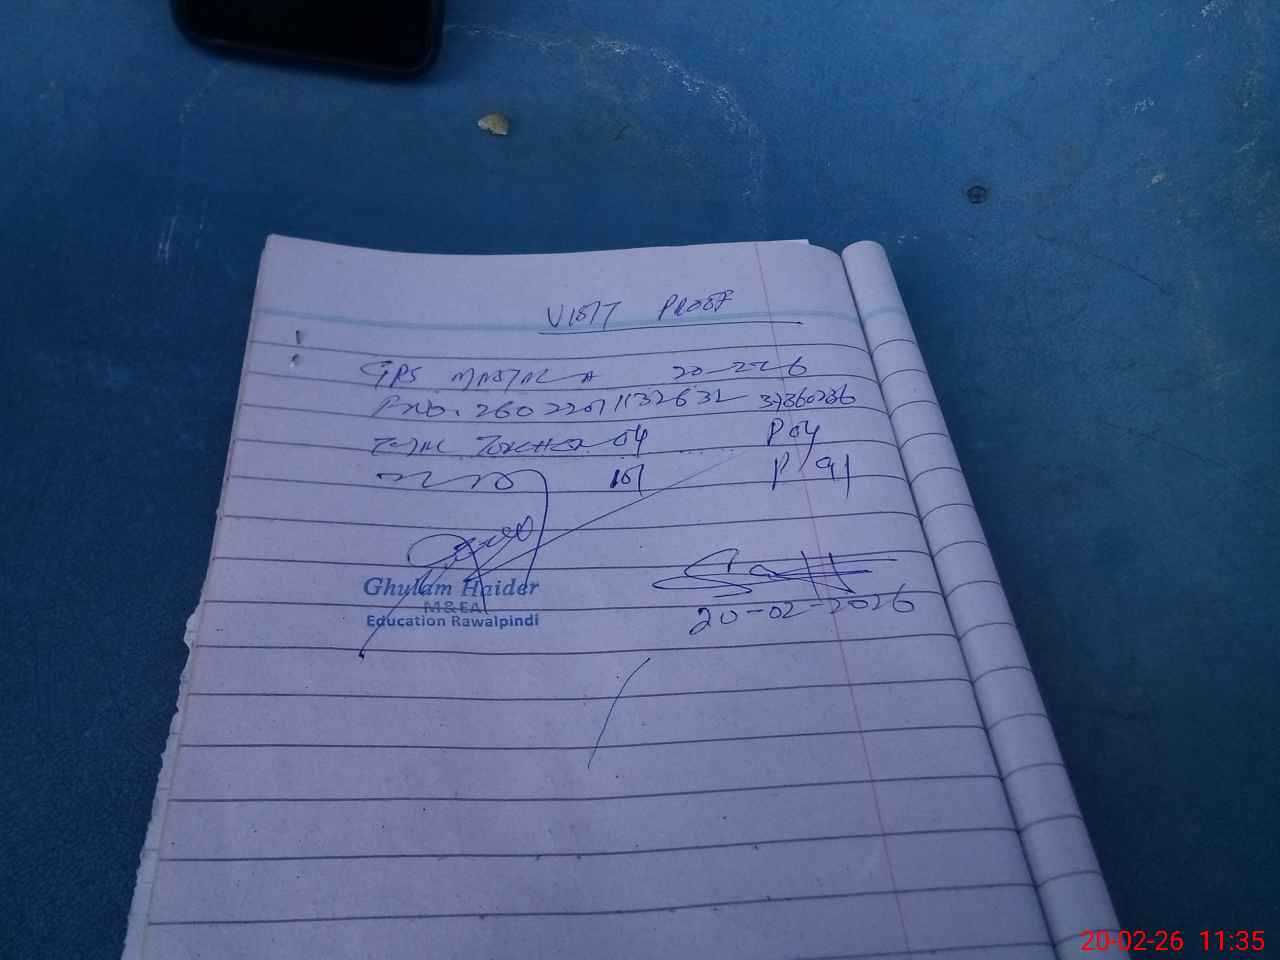 VISIT PROOF
GPS 20-2-26
2602201132632 37360236
Total Teacher 04 P 04
101 P 91
Ghulam Haider
M&EA
Education Rawalpindi
20-02-2026
20-02-26 11:35